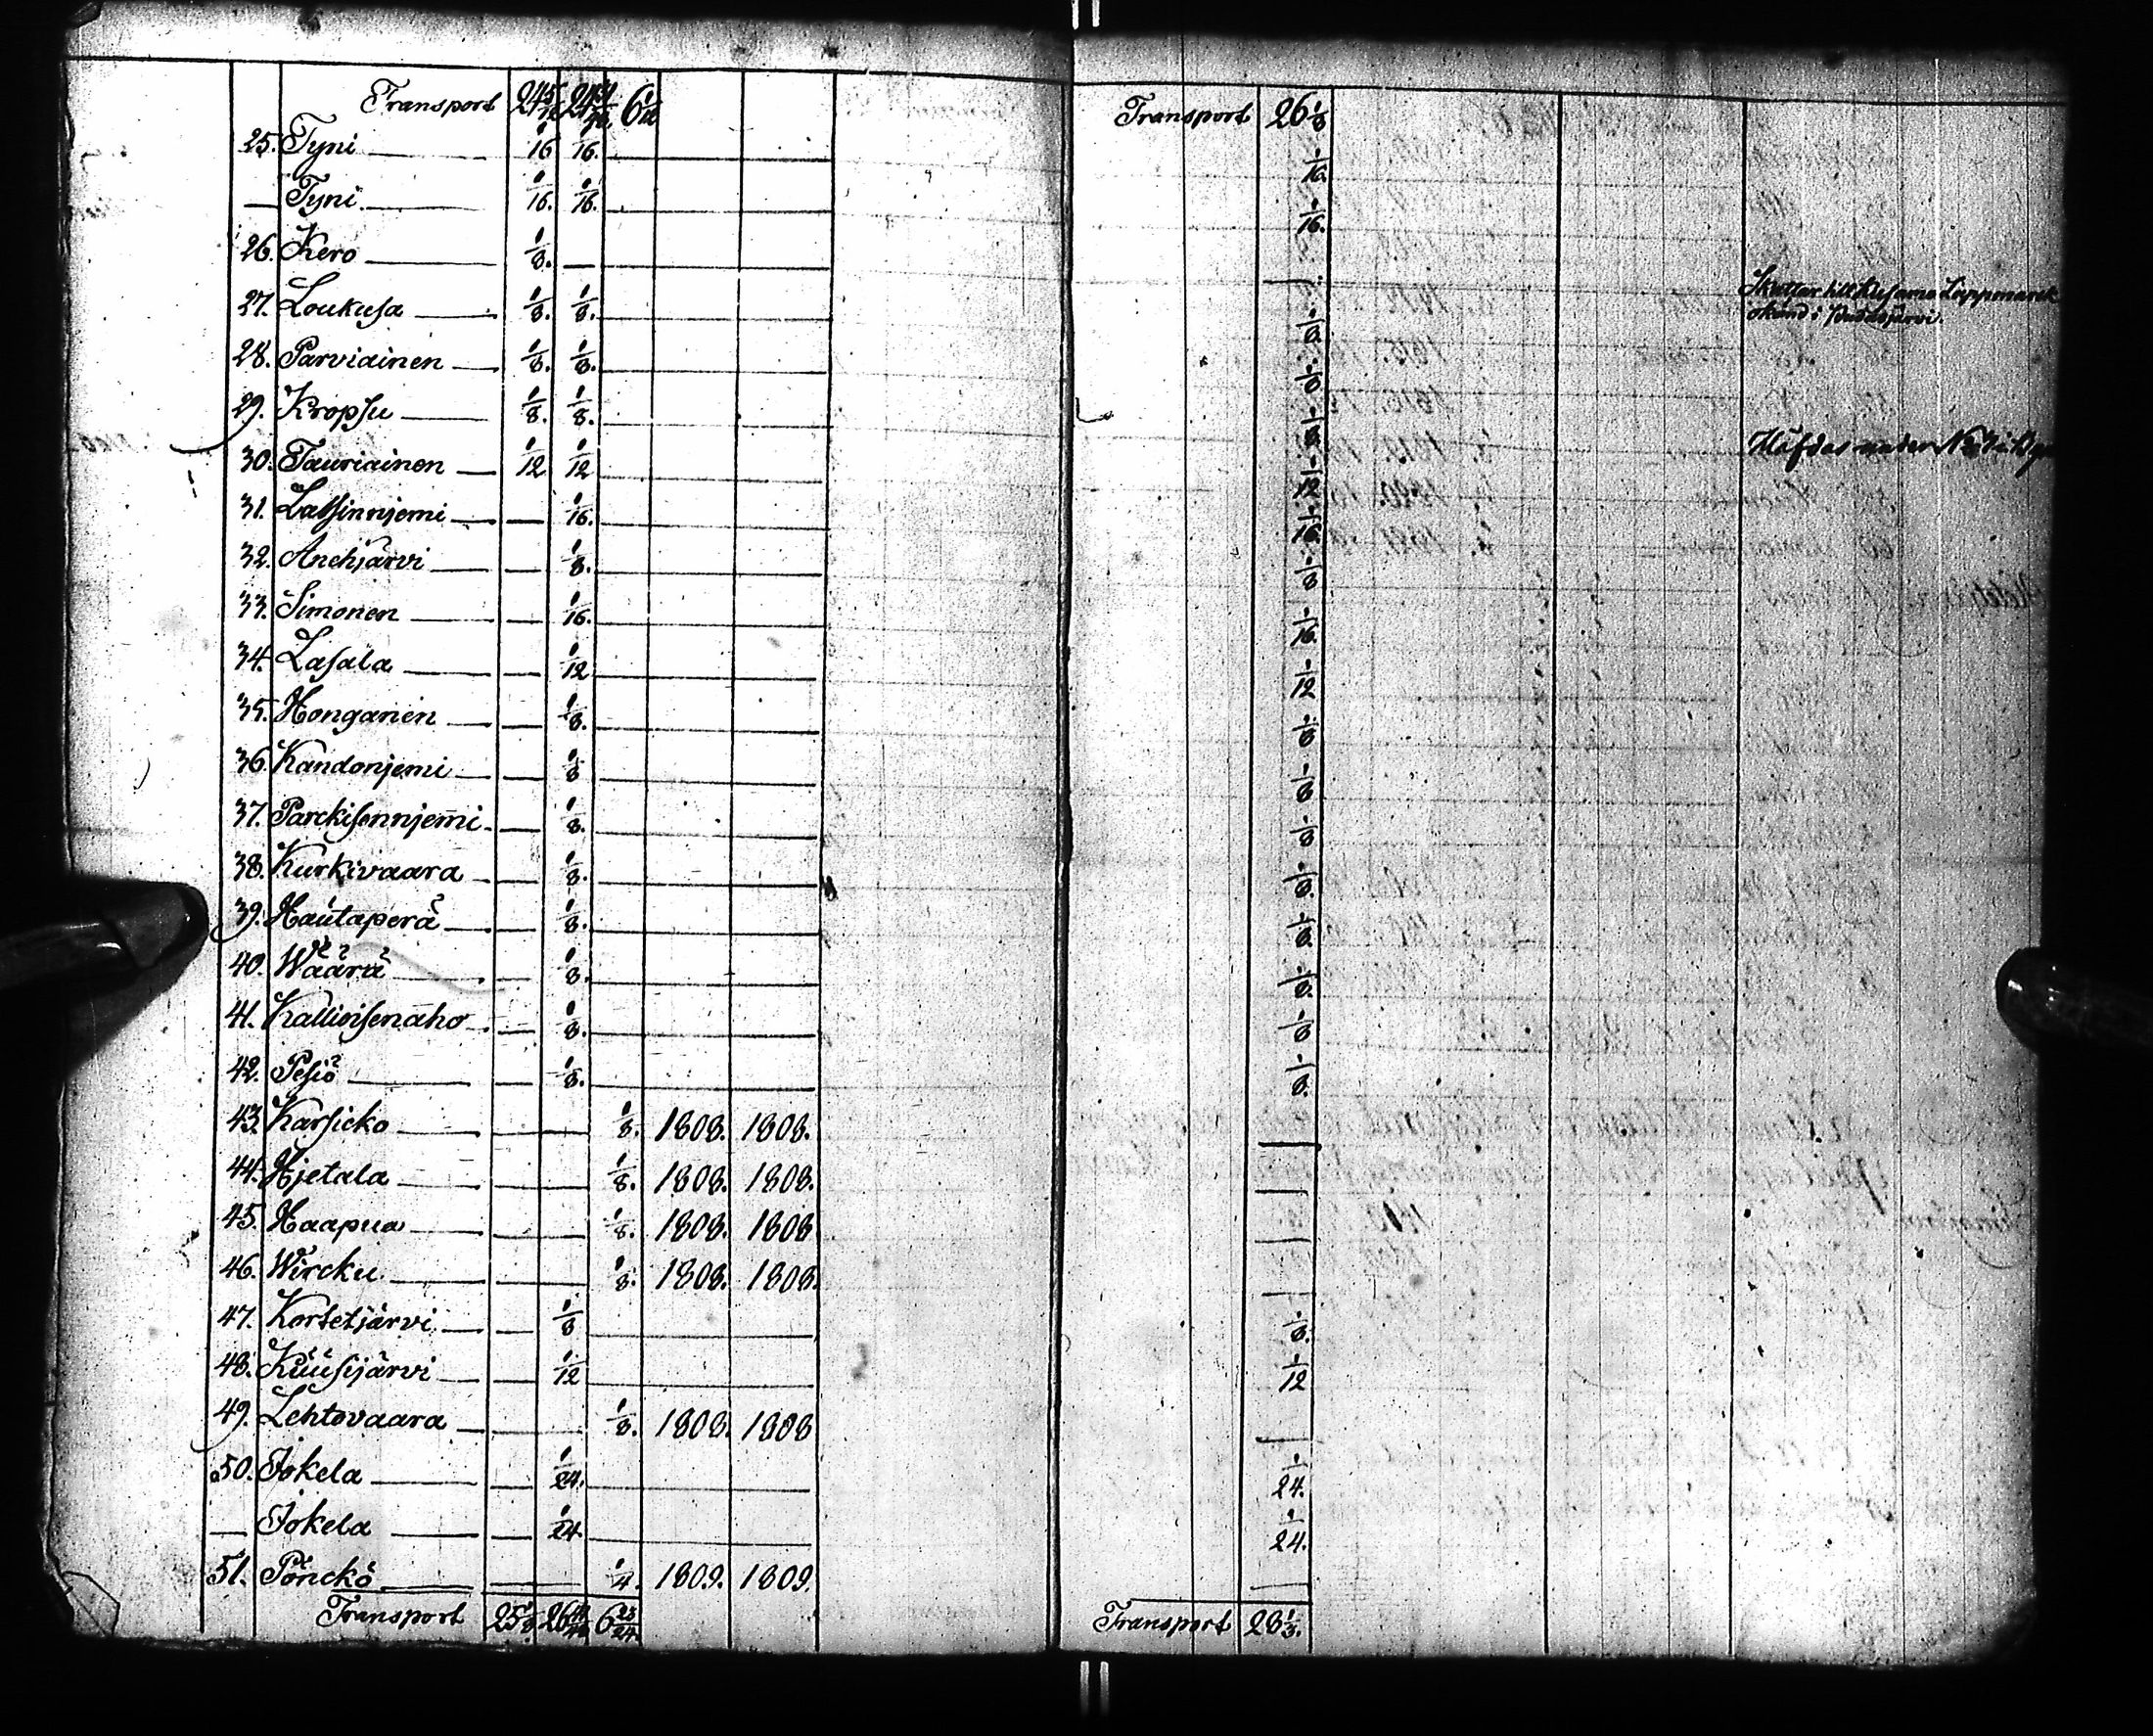 Transport 24 5/12 6 1/12
25. Tyni 1/16 1/16.
— Tyni. 1/16. 1/16.
26. Kero 1/8. —
27. Loukusa 1/8. 1/8.
28. Parviainen 1/8. 1/8.
29. Kropsu 1/8. 1/8.
30. Tauriainen 1/12 1/12
31. Latsinnjemi — 1/16.
32. Anehjärvi — 1/8.
33. Simonen — 1/16.
34. Lasala — 1/12
35. Honganen — 1/8.
36. Kandonjemi — 1/8
37. Parckisennjemi — 1/8.
38. Kurkivaara — 1/8.
39. Hautaperä — 1/8.
40. Wäärä — 1/8.
41. Kallioisenaho — 1/8.
42. Pesiö — 1/8.
43. Karsicko — — 1/8. 1808. 1808.
44. Hjetala — — 1/8. 1808. 1808.
45. Haapua — — 1/8. 1808. 1808
46. Wircku — — 1/8. 1808. 1808.
47. Kortetjärvi — 1/8
48. Kuusijärvi — 1/12
49. Lehtovaara — — 1/8. 1808. 1808
50. Jokela — 1/24.
— Jokela — 1/24
51. Pönckö — — 1/4. 1809. 1809.
Transport 25 1/8 6 23/24.
Transport 26 1/8
1/16.
1/16.
—
Skattar till Kusamo Lappmarck
1/8.
1/8.
1/8.
Häfdas under
1/12
1/16.
1/8
1/16.
1/12
1/8
1/8
1/8
1/8.
1/8.
1/8.
1/8
1/8.
—
—
—
—
1/8.
1/12
—
1/24.
1/24.
—
Transport 28 1/3.